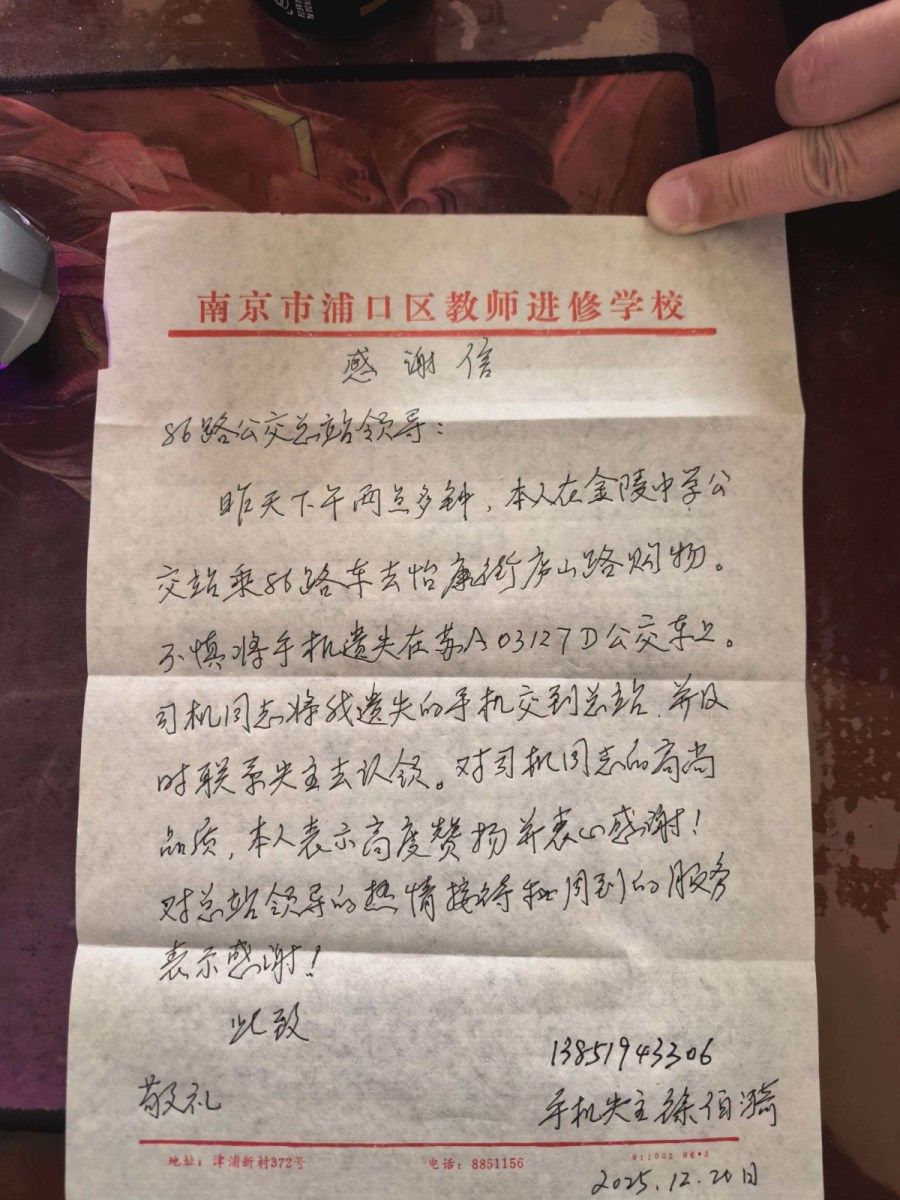 南京市浦口区教师进修学校
感谢信
86路公交总站领导：
昨天下午两点多钟，本人在金陵中学公
交站乘86路车去怡康街庐山路购物。
不慎将手机遗失在苏A03127D公交车上。
司机同志将我遗失的手机交到总站，并及
时联系失主去认领。对司机同志的高尚
品质，本人表示高度赞扬并衷心感谢！
对总站领导的热情接待和周到的服务
表示感谢！
此致
13851943306
敬礼
手机失主 徐伯
地址：津浦新村372号
电话：8851156
2025.12.20日